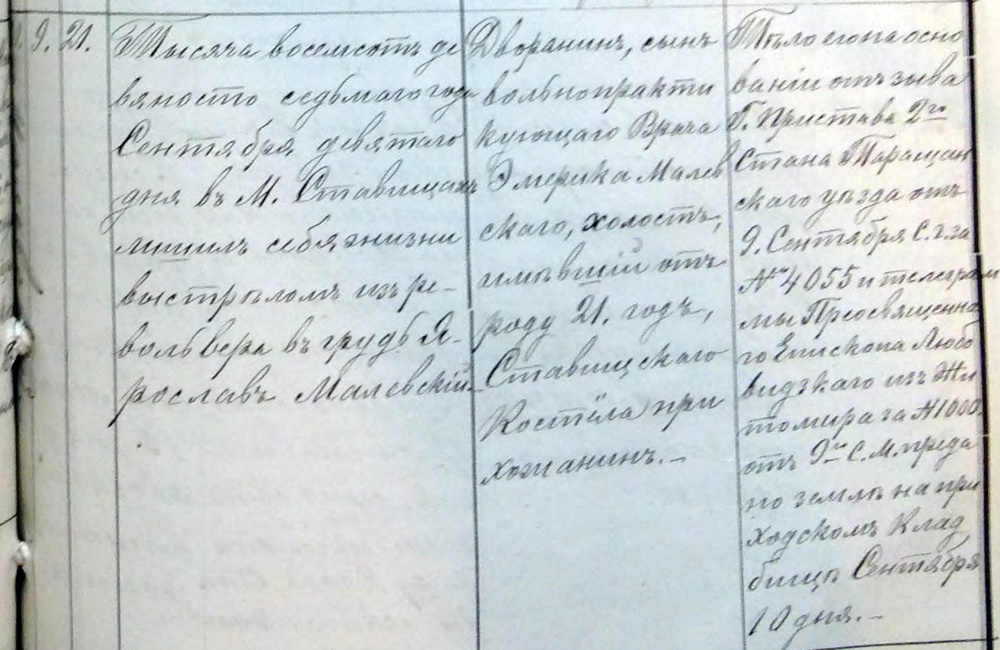 9. 21.
Тысяча восемсотъ де
вяносто седьмаго года
Сентября девятаго
дня въ М. Ставищахъ
лишилъ себя жизни
выстрѣломъ изъ ре-
вольвера въ грудь Я-
рославъ Малевскій
Дворанинъ, сынъ
вольнопракти
кующаго Врача
Эмерика Малев
скаго, холостъ,
имѣвшій отъ
роду 21. годъ,
Ставищскаго
Костёла при
хожанинъ.–
Тѣло его на осно
ваніи отзыва
Г. Пристава 2го
Стана Таращан
скаго уѣзда отъ
9. Сентября С. г. за
№ 4055 и телеграм
мы Преосвященна
го Епископа Любо
видзкаго изъ Жи
томира за № 1000.
отъ 9го С. М. преда
но землѣ на при
ходскомъ Клад
бищѣ Сентября
10 дня.–